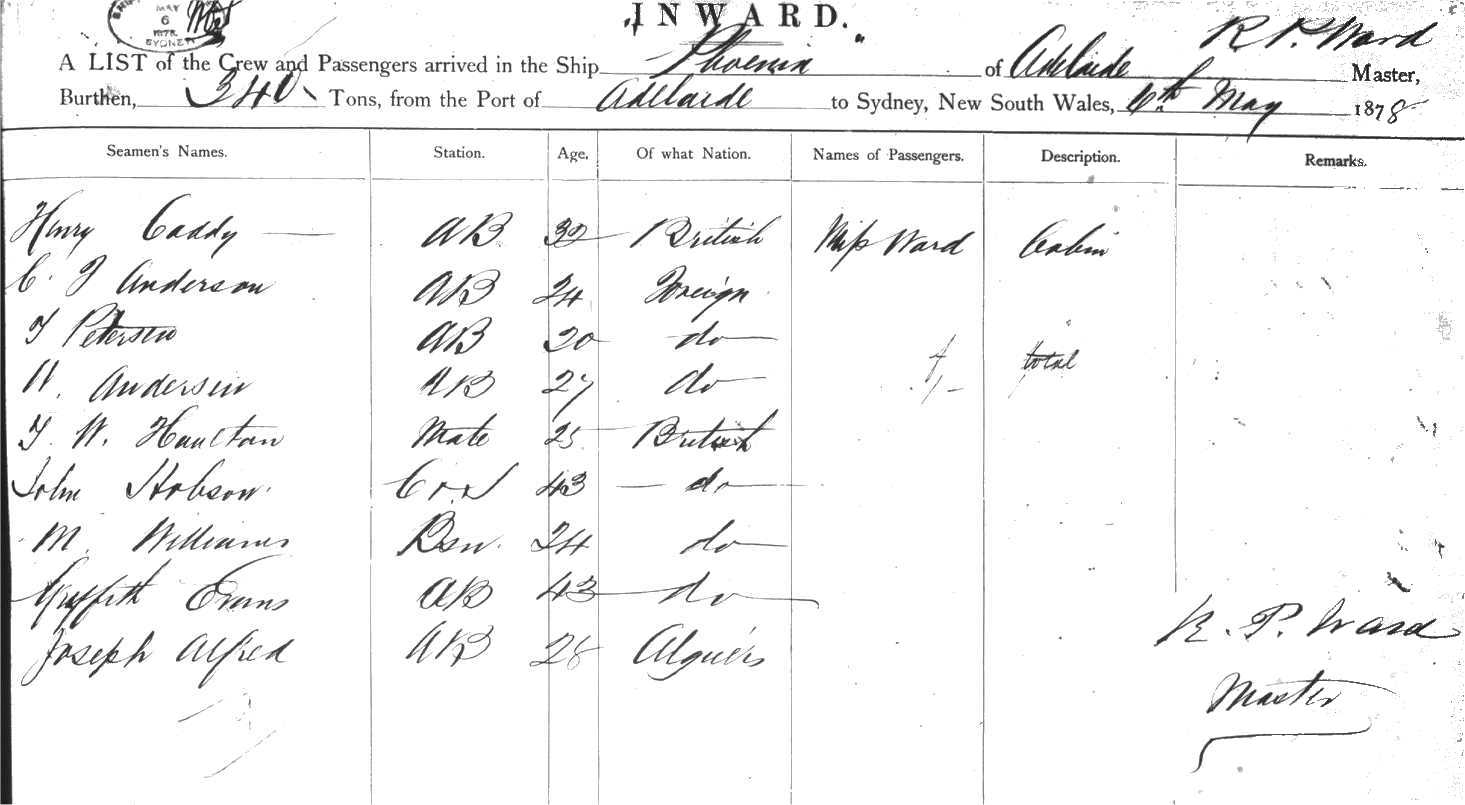 MAY
6
1878
SYDNEY
INWARD.
R P. Ward
A LIST of the Crew and Passengers arrived in the Ship Phoenix of Adelaide Master,
Burthen, 340 Tons, from the Port of Adelaide to Sydney, New South Wales, 6th May 1878
Seamen's Names. Station. Age. Of what Nation. Names of Passengers. Description. Remarks.
Henry Caddy AB 32 British Miss Ward Cabin
C. J Anderson AB 24 Foreign
J Petersen AB 20 do
total
A. Andersen AB 27 do
J. W. Haulton Mate 25 British
John Hobson Cook 43 do
M. Williams Bsn. 24 do
Griffith Evans AB 43 do
R. P. Ward
Joseph Alfred AB 28 Alguérs
Master